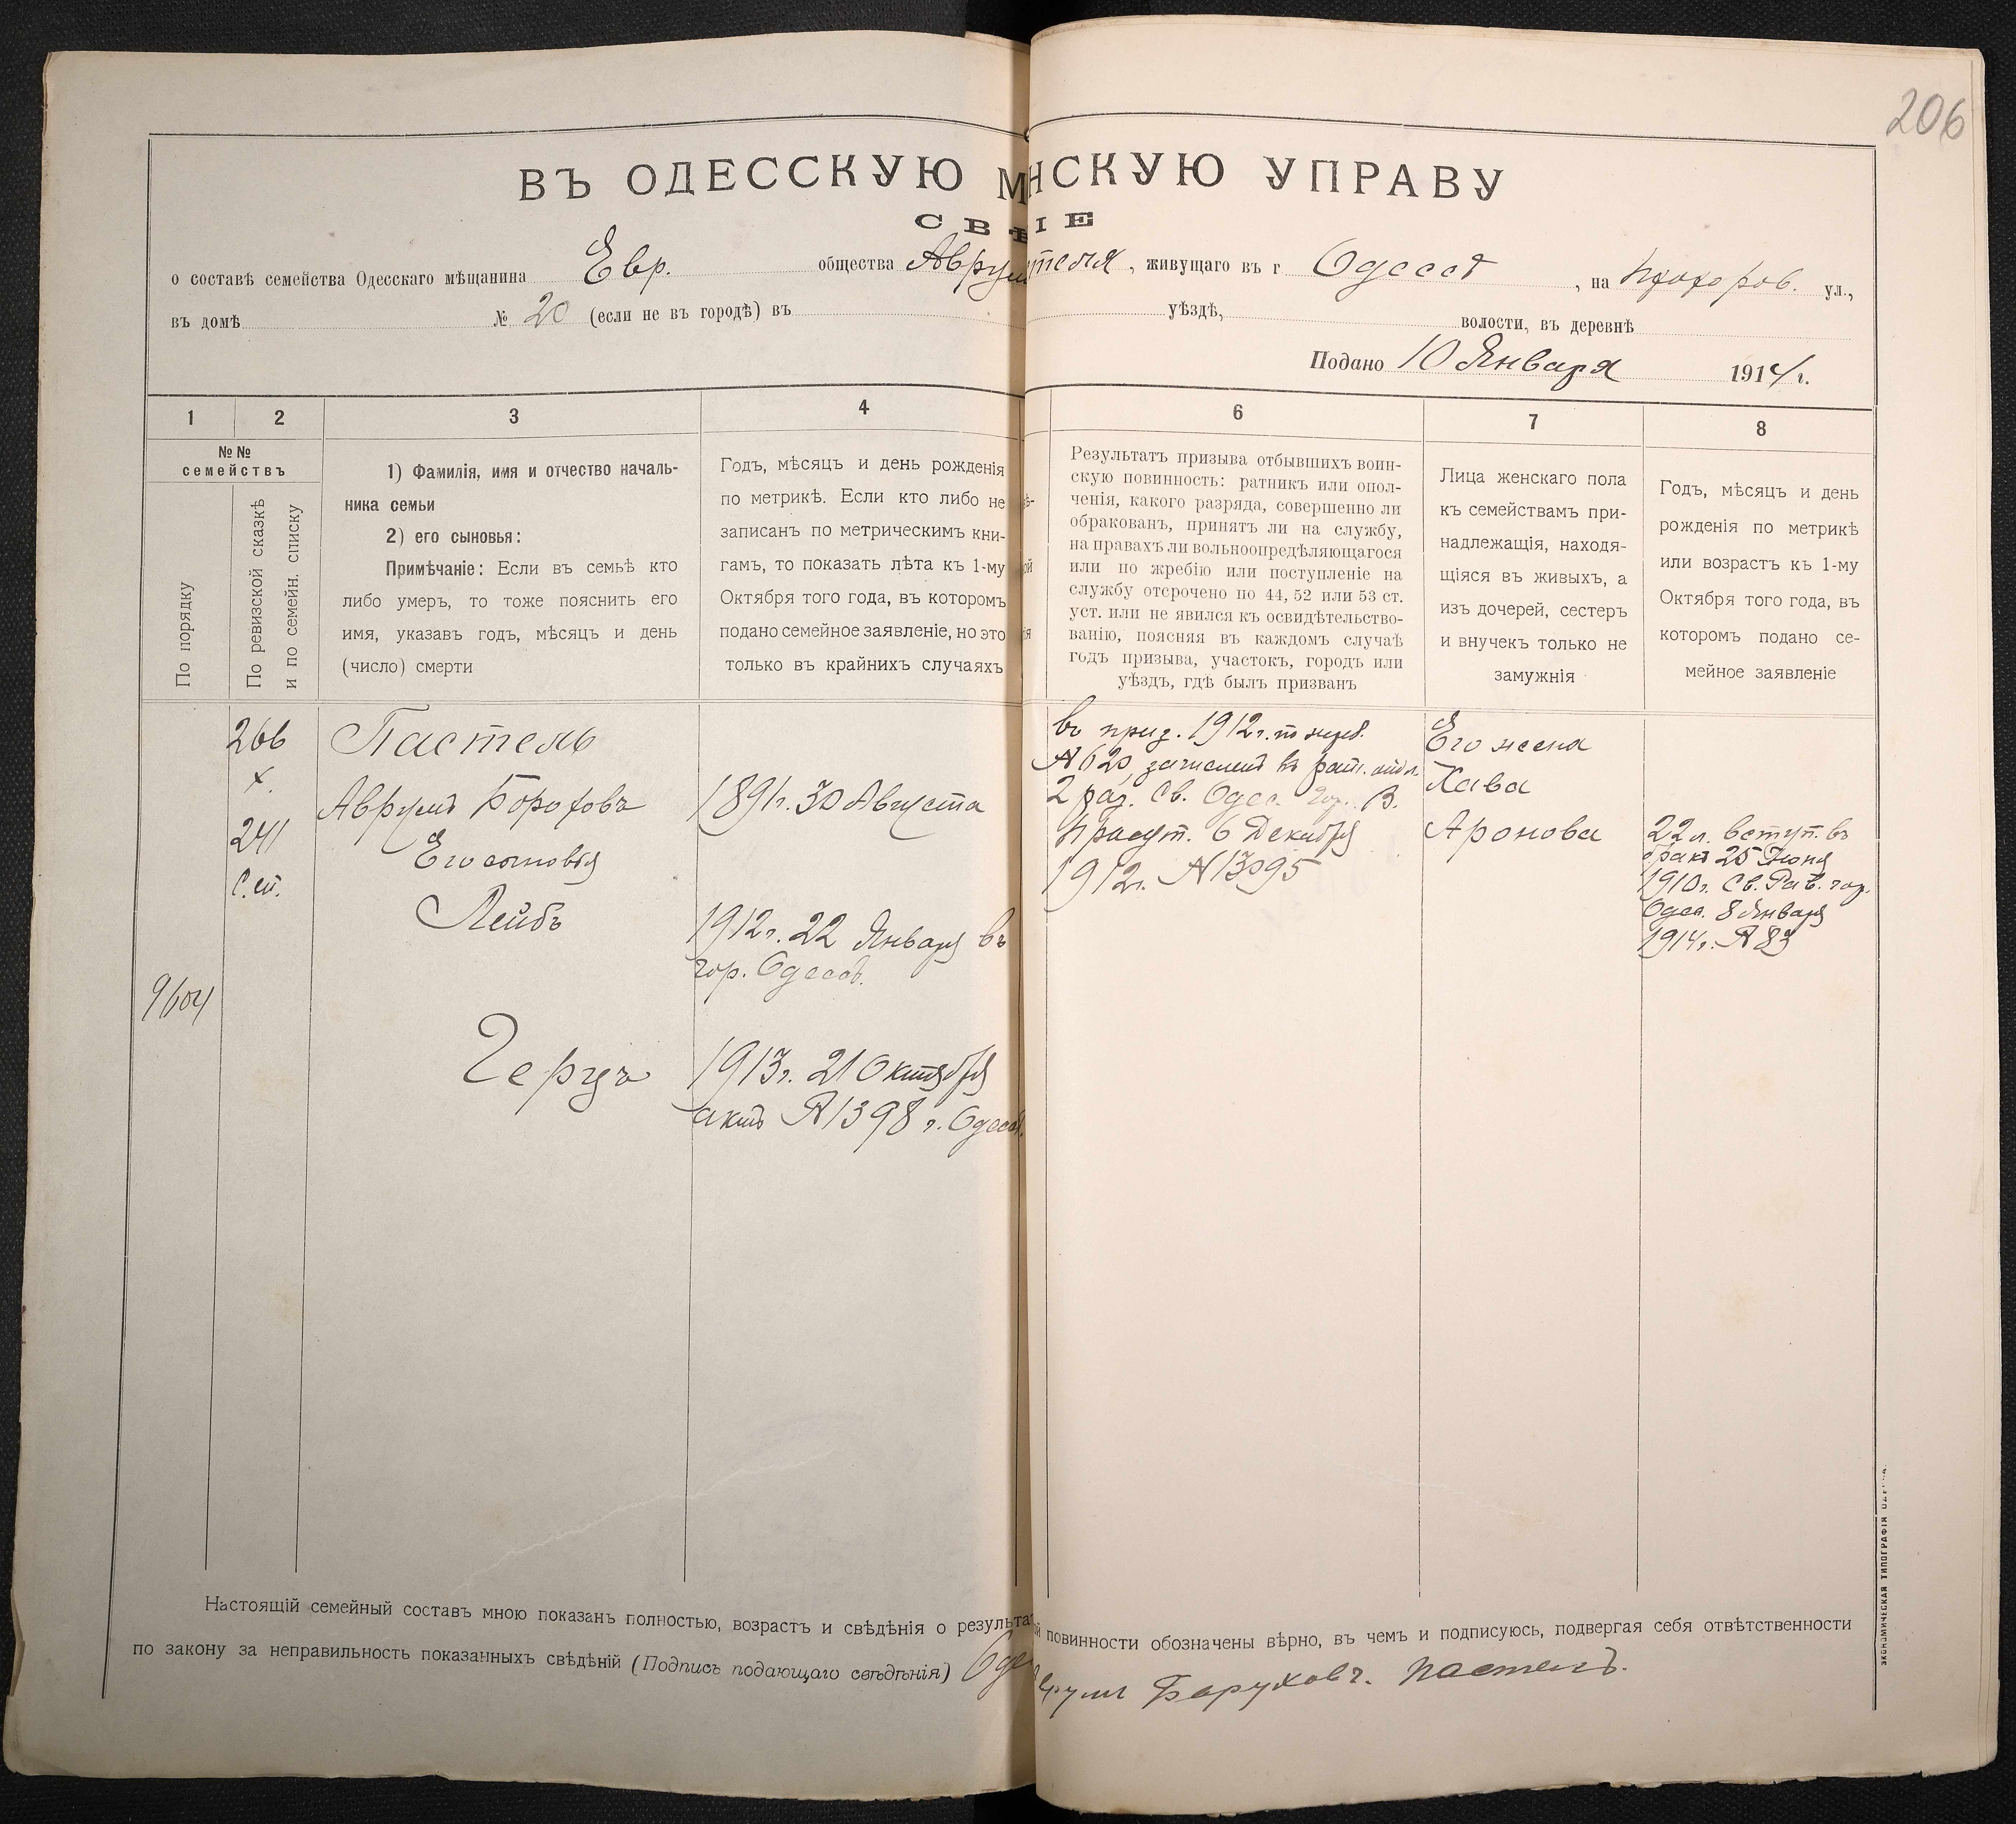 206
ВЪ ОДЕССКУЮ М НСКУЮ УПРАВУ
СВѢ IE
о составѣ семейства Одесскаго мѣщанина Евр. общества Аврум стеля, живущаго въ г Одессѣ, на Прохоров. ул.,
въ домѣ № 20 (если не въ городѣ) въ уѣздѣ, волости, въ деревнѣ
Подано 10 Января 1914 г.
1 2 3 4 6 7 8
№№ семействъ
По порядку
По ревизской сказкѣ и по семейн. списку
1) Фамилія, имя и отчество началь-
ника семьи
2) его сыновья:
Примѣчаніе: Если въ семьѣ кто
либо умеръ, то тоже пояснить его
имя, указавъ годъ, мѣсяцъ и день
(число) смерти
Годъ, мѣсяцъ и день рожденія
по метрикѣ. Если кто либо не
записанъ по метрическимъ кни-
гамъ, то показать лѣта къ 1-му
Октября того года, въ которомъ
подано семейное заявленіе, но это
только въ крайнихъ случаяхъ
Результатъ призыва отбывшихъ воин-
скую повинность: ратникъ или опол-
ченія, какого разряда, совершенно ли
обракованъ, принятъ ли на службу,
на правахъ ли вольноопредѣляющагося
или по жребію или поступленіе на
службу отсрочено по 44, 52 или 53 ст.
уст. или не явился къ освидѣтельство-
ванію, поясняя въ каждомъ случаѣ
годъ призыва, участокъ, городъ или
уѣздъ, гдѣ былъ призванъ
Лица женскаго пола
къ семействамъ при-
надлежащія, находя-
щіяся въ живыхъ, а
изъ дочерей, сестеръ
и внучекъ только не
замужнія
Годъ, мѣсяцъ и день
рожденія по метрикѣ
или возрастъ къ 1-му
Октября того года, въ
которомъ подано се-
мейное заявленіе
266
х.
241
С.сп.
9604
Пастель
Аврумъ Бороховъ
Его сыновья
Лейбъ
Герцъ
1891 г. 30 Августа
1912 г. 22 Января въ
гор. Одессѣ.
1913 г. 21 Октября
актъ № 1398 г. Одессѣ.
въ приз. 1912 г. по жереб.
№ 620, зачисленъ въ рат. опол.
2 раз. Св. Одес. гор. В.
Присут. 6 Декабря
1912 г. № 13095
Его жена
Хава
Аронова
22 л. вступ. въ
бракъ 25 Іюня
1910 г. Св. Рав. гор.
Одес. 8 Января
1914 г. № 83
Настоящій семейный составъ мною показанъ полностью, возрастъ и свѣдѣнія о результат й повинности обозначены вѣрно, въ чемъ и подписуюсь, подвергая себя отвѣтственности
по закону за неправильность показанныхъ свѣдѣній (Подпись подающаго свѣдѣнія) Оде румъ Боруховъ. Пастель.
ЭКОНОМИЧЕСКАЯ ТИПОГРАФІЯ